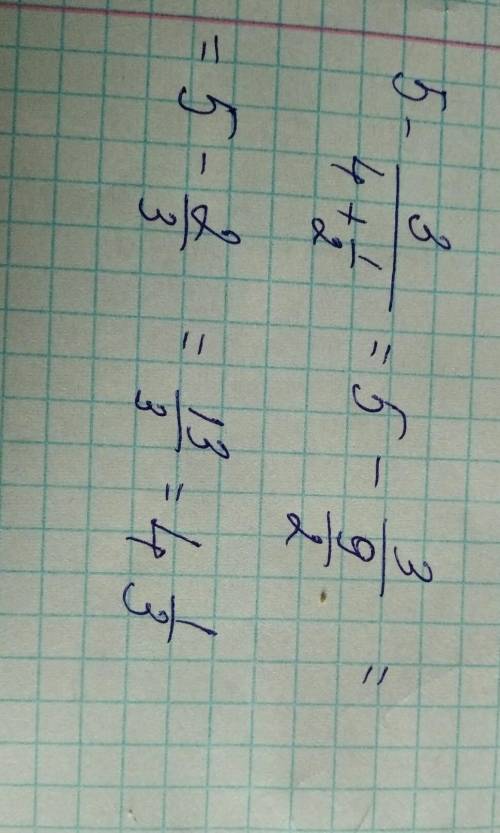 5 - 3/(4 + 1/2) = 5 - 3/(9/2) =
= 5 - 2/3 = 13/3 = 4 1/3